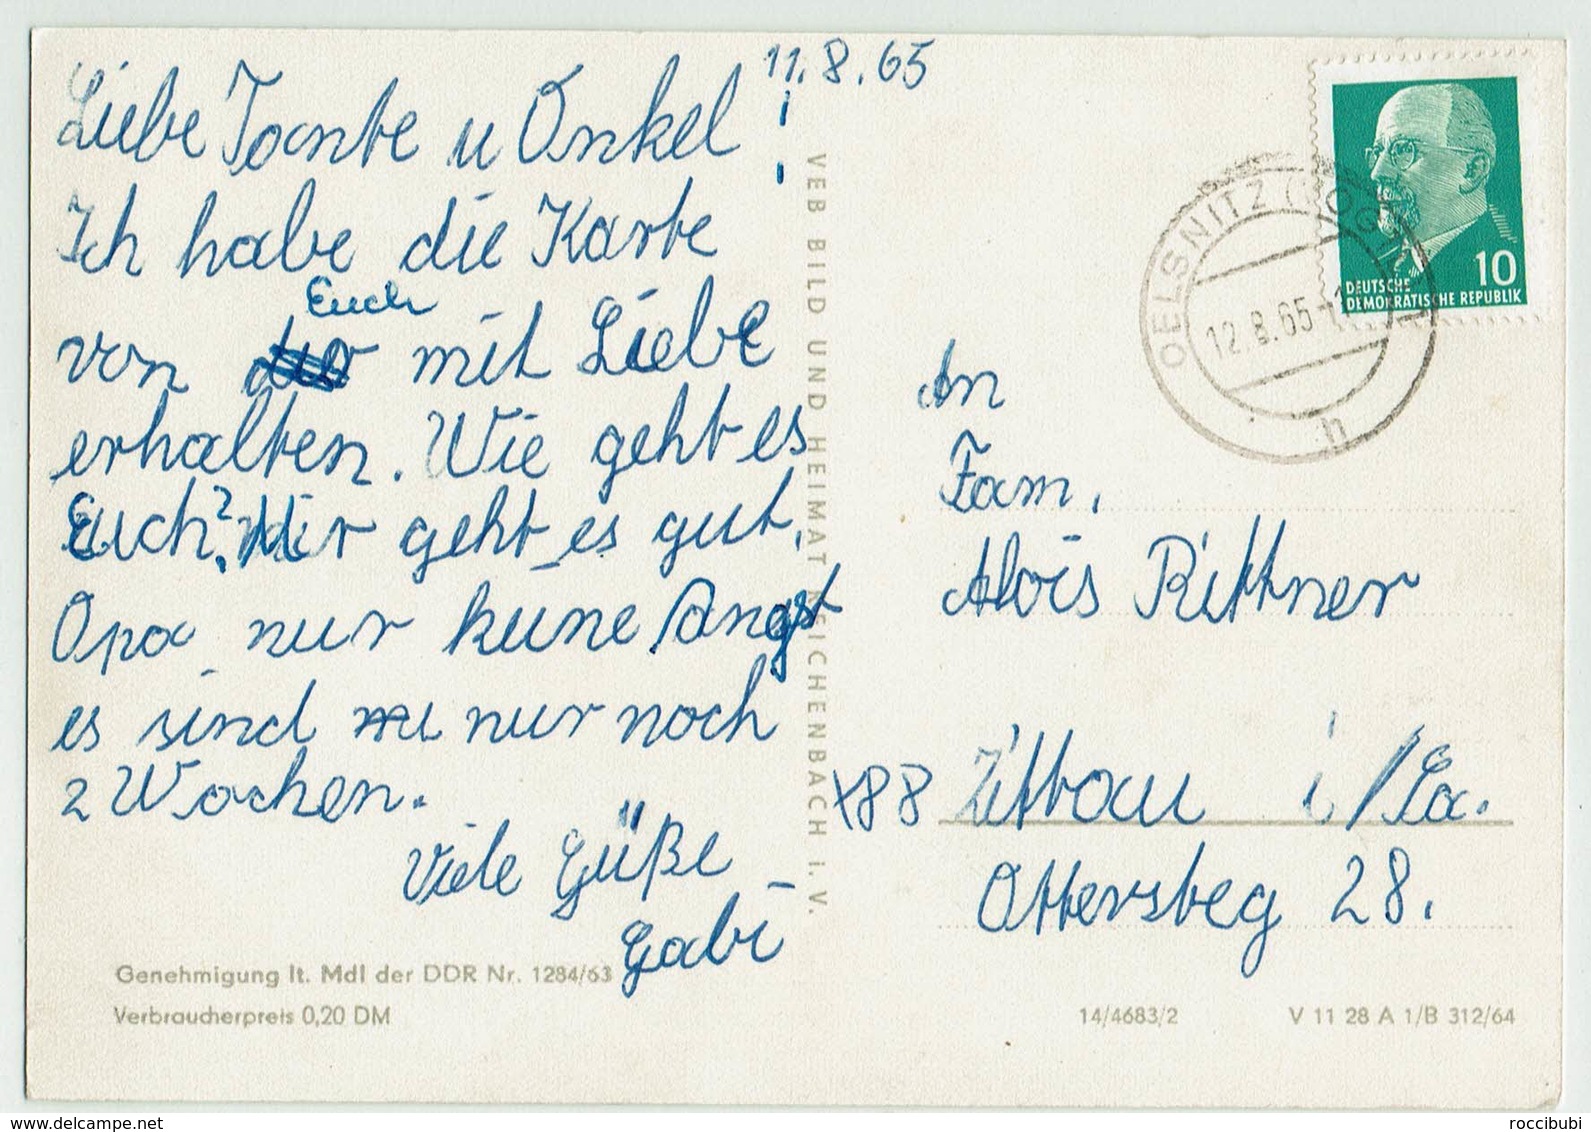 11.8.65
Liebe Tante u Onkel!
Ich habe die Karte
Euch
von mit Liebe
erhalten. Wie geht es
Euch? Mir geht es gut,
Opa nur keine Angst
es sind nur noch
2 Wochen.
Viele Güße
Gabi
Genehmigung lt. MdI der DDR Nr. 1284/63
Verbraucherpreis 0,20 DM
VEB BILD UND HEIMAT REICHENBACH I. V.
10
DEUTSCHE
DEMOKRATISCHE REPUBLIK
OELSNITZ (VOGTL)
12.8.65-1
h
An
Fam.
Alois Rittner
x88 Zittau i/Sa.
Ottersteg 28.
14/4683/2
V 11 28 A 1/B 312/64
www.delcampe.net
roccibubi